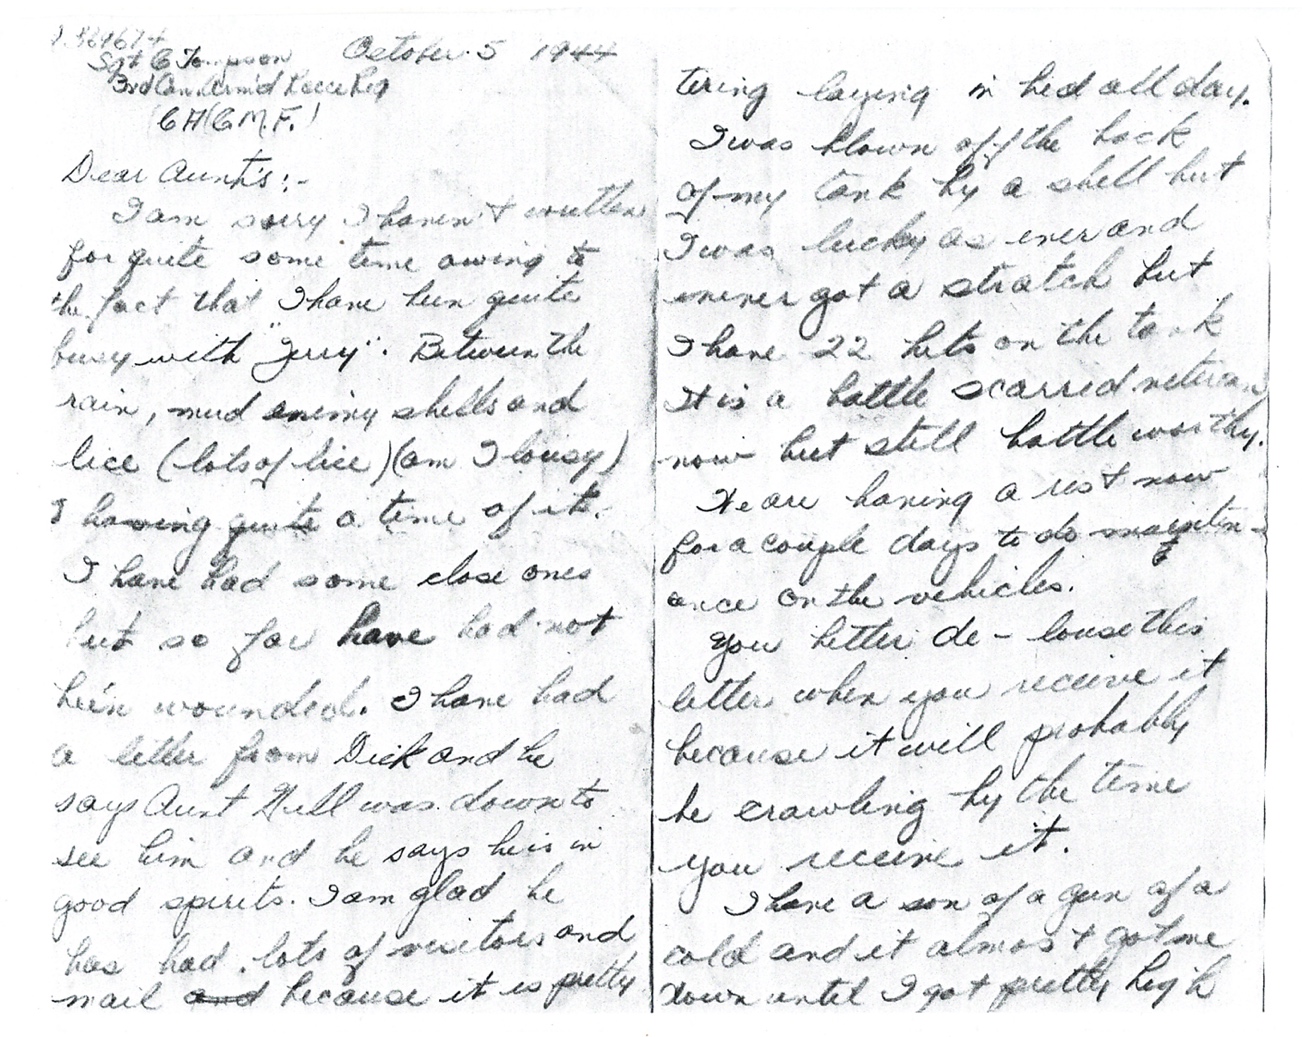 Sgt G Tompson October 5 1944
3rd Can. Arm'd Recce Reg
C.A.(C.M.F.)
Dear Aunt's:-
I am sorry I haven't written
for quite some time owing to
the fact that I have been quite
busy with "Jerry". Between the
rain, mud enimy shells and
lice (lots of lice) (am I lousy)
I having quite a time of it.
I have had some close ones
but so far have had not
be'en wounded. I have had
a letter from Dick and he
says Aunt Nell was down to
see him and he says he is in
good spirits. I am glad he
has had lots of visitors and
mail and because it is pretty
tiring laying in bed all day.
I was blown off the back
of my tank by a shell but
I was lucky as ever and
never got a stratch but
I have 22 hits on the tank
It is a battle scarred veteran
now but still battle worthy.
We are having a rest now
for a couple days to do
ance on the vehicles.
You better de-louse this
letter when you receive it
because it will probably
be crawling by the time
you receive it.
I have a son of a gun of a
cold and it almost got me
down until I got pretty high